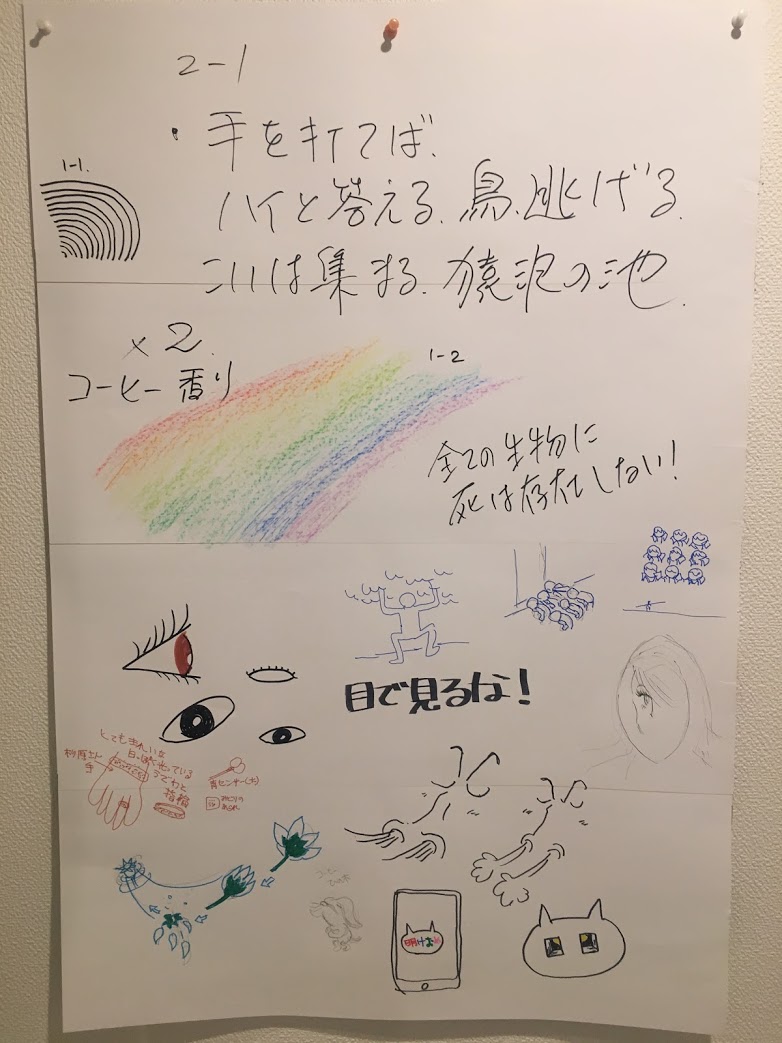 2-1
・手を打てば、
ハイと答える、鳥、逃げる、
こいは集まる、猿沢の池、
1-1.
×2
コーヒー香り
1-2
全ての生物に
死は存在しない!
目で見るな!
とてもきれいな
白っぽく光っている
うでわと
指輪
手
明けまし